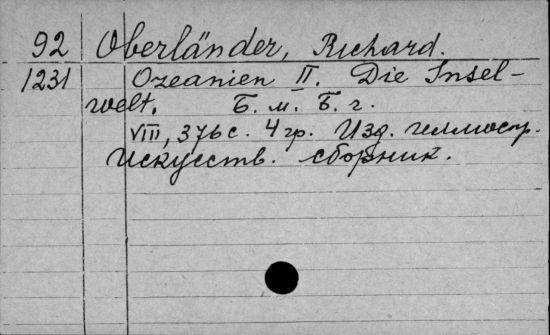 92 Oberländer, Richard.
1231 Ozeanien II. Die Insel-
welt. Б. м. Б. г.
VIII, 376 с. 4 гр. Изд.
Искусств. сборник.